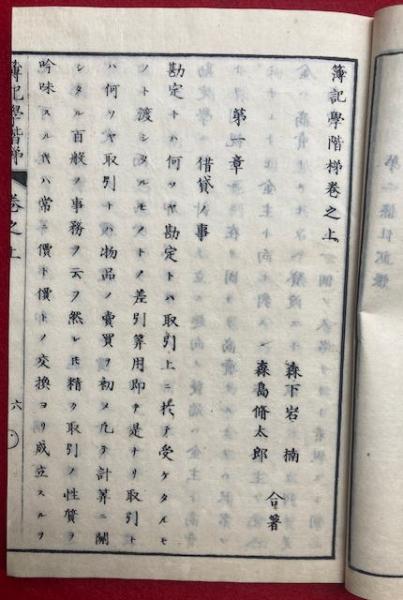 簿記學階梯卷之上
森下岩楠
森島脩太郎
合著
第一章
借貸ノ事
勘定トハ何ソヤ勘定トハ取引上ニ於テ受ケタルモ
ノト渡シタルモノトノ差引算用即チ是ナリ取引ト
ハ何ソヤ取引トハ物品ノ賣買ヲ初メ凡テ計算ニ關
シタル百般ノ事務ヲ云フ然レ𪜈精ク取引ノ性質ヲ
吟味スレハ常ニ價ト價トノ交換ヨリ成立スルヲ
簿記學階梯 卷之上
六